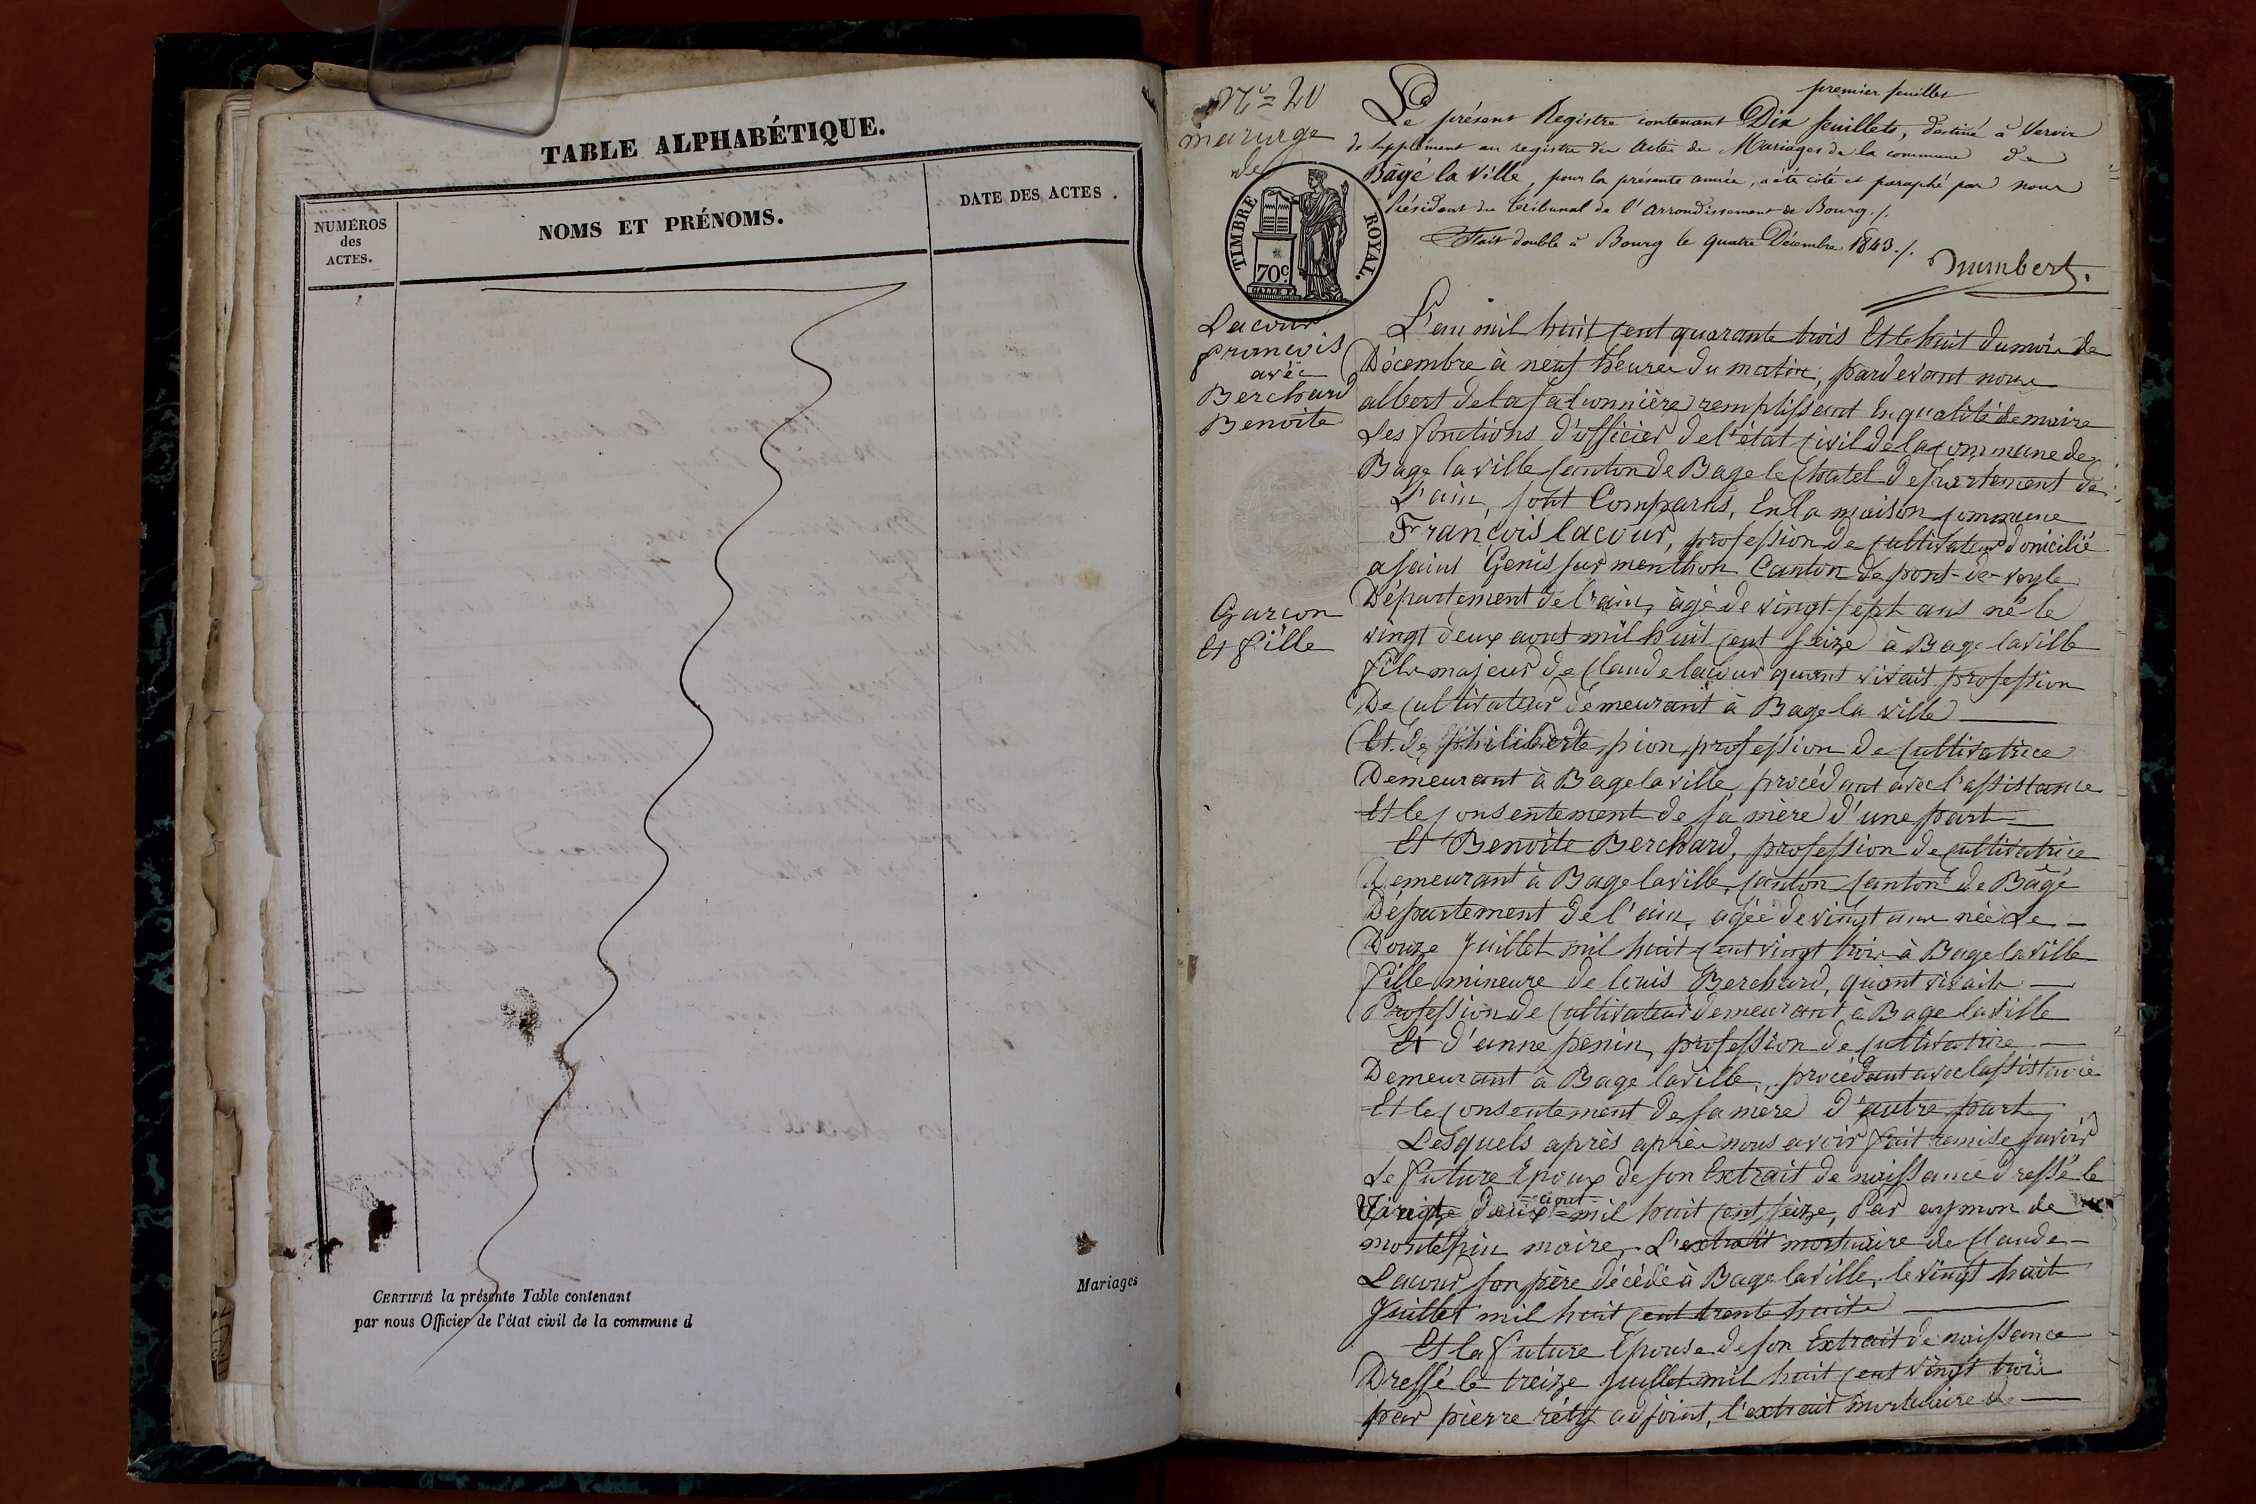 TABLE ALPHABÉTIQUE.
NUMÉROS
des
ACTES.
NOMS ET PRÉNOMS.
DATE DES ACTES.
CERTIFIÉ la présente Table contenant
par nous Officier de l'état civil de la commune d
Mariages
premier feuillet
N° 20
mariage
de
TIMBRE ROYAL.
70c
Le présent Registre contenant Dix feuillets, destiné à servir
de supplément au registre des actes de Mariages de la commune de
Bâgé la Ville, pour la présente année, a été coté et paraphé par nous
Président du Tribunal de l'arrondissement de Bourg./.
Fait double à Bourg le quatre Décembre 1843./.
Lacour
francois
avec
Berchard
Benoite
Garcon
Et fille
L'an mil huit cent quarante trois Et le huit du mois de
Décembre à neuf heures du matin, pardevant nous
albert de la falconnière remplissant En qualité de maire
Les fonctions d'officier de l'état civil de la commune de
Bage la ville canton de Bage le chatel département de
L'ain, sont Comparus, En la maison commune
François lacour, profession de cultivateur domicilié
a saint Genis sur menthon Canton de pont-de-veyle
Département de l'ain, âgé de vingt sept ans né le
vingt deux aout mil huit cent seize à Bage la ville
fils majeur de Claude lacour quant vivait profession
De cultivateur demeurant à Bage la ville
Et de philiberte pion, profession de cultivatrice
Demeurant à Bage la ville, procédant avec l'assistance
Et le consentement de sa mère d'une part
Et Benoite Berchard, profession de cultivatrice
Demeurant à Bage la ville, canton canton de Bâgé
Département de l'ain, agée de vingt ans née Le
Douze Juillet mil huit cent vingt trois à Bage la ville
fille mineure de louis Berchard, quant vivait
Profession de cultivateur demeurant à Bage la ville
Et d'anne penin, profession de cultivatrice
Demeurant à Bage la ville, procédant avec lassistance
Et le consentement de sa mère d'autre part
Lesquels après après nous avoir fait remise savoir
Le future Epoux de son Extrait de naissance dressé le
Vingt deux aout mil huit cent seize, Par aymon de
montépin maire, L'extrait mortuaire de Claude
Lacour son père décédé à Bage la ville, le vingt huit
Juillet mil huit cent trente huit
Et la future Epouse de son Extrait de naissance
Dressé le treize Juillet mil huit cent vingt trois
par pierre adjoint, l'extrait mortuaire de